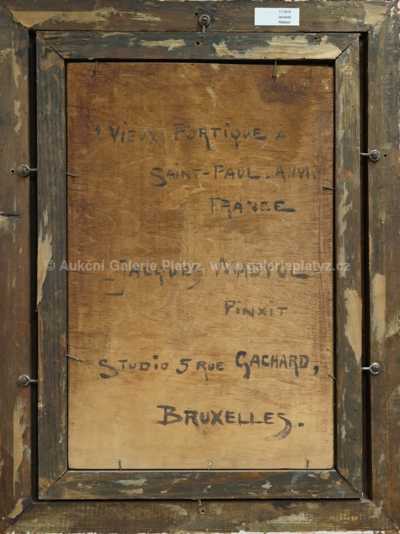 " VIEUX PORTIQUE A
SAINT-PAUL. A.M.
FRANCE
© Aukční Galerie Platýz, www.galerieplatyz.cz
JACQUES MADYOL
PINXIT
STUDIO 5 RUE GACHARD,
BRUXELLES.